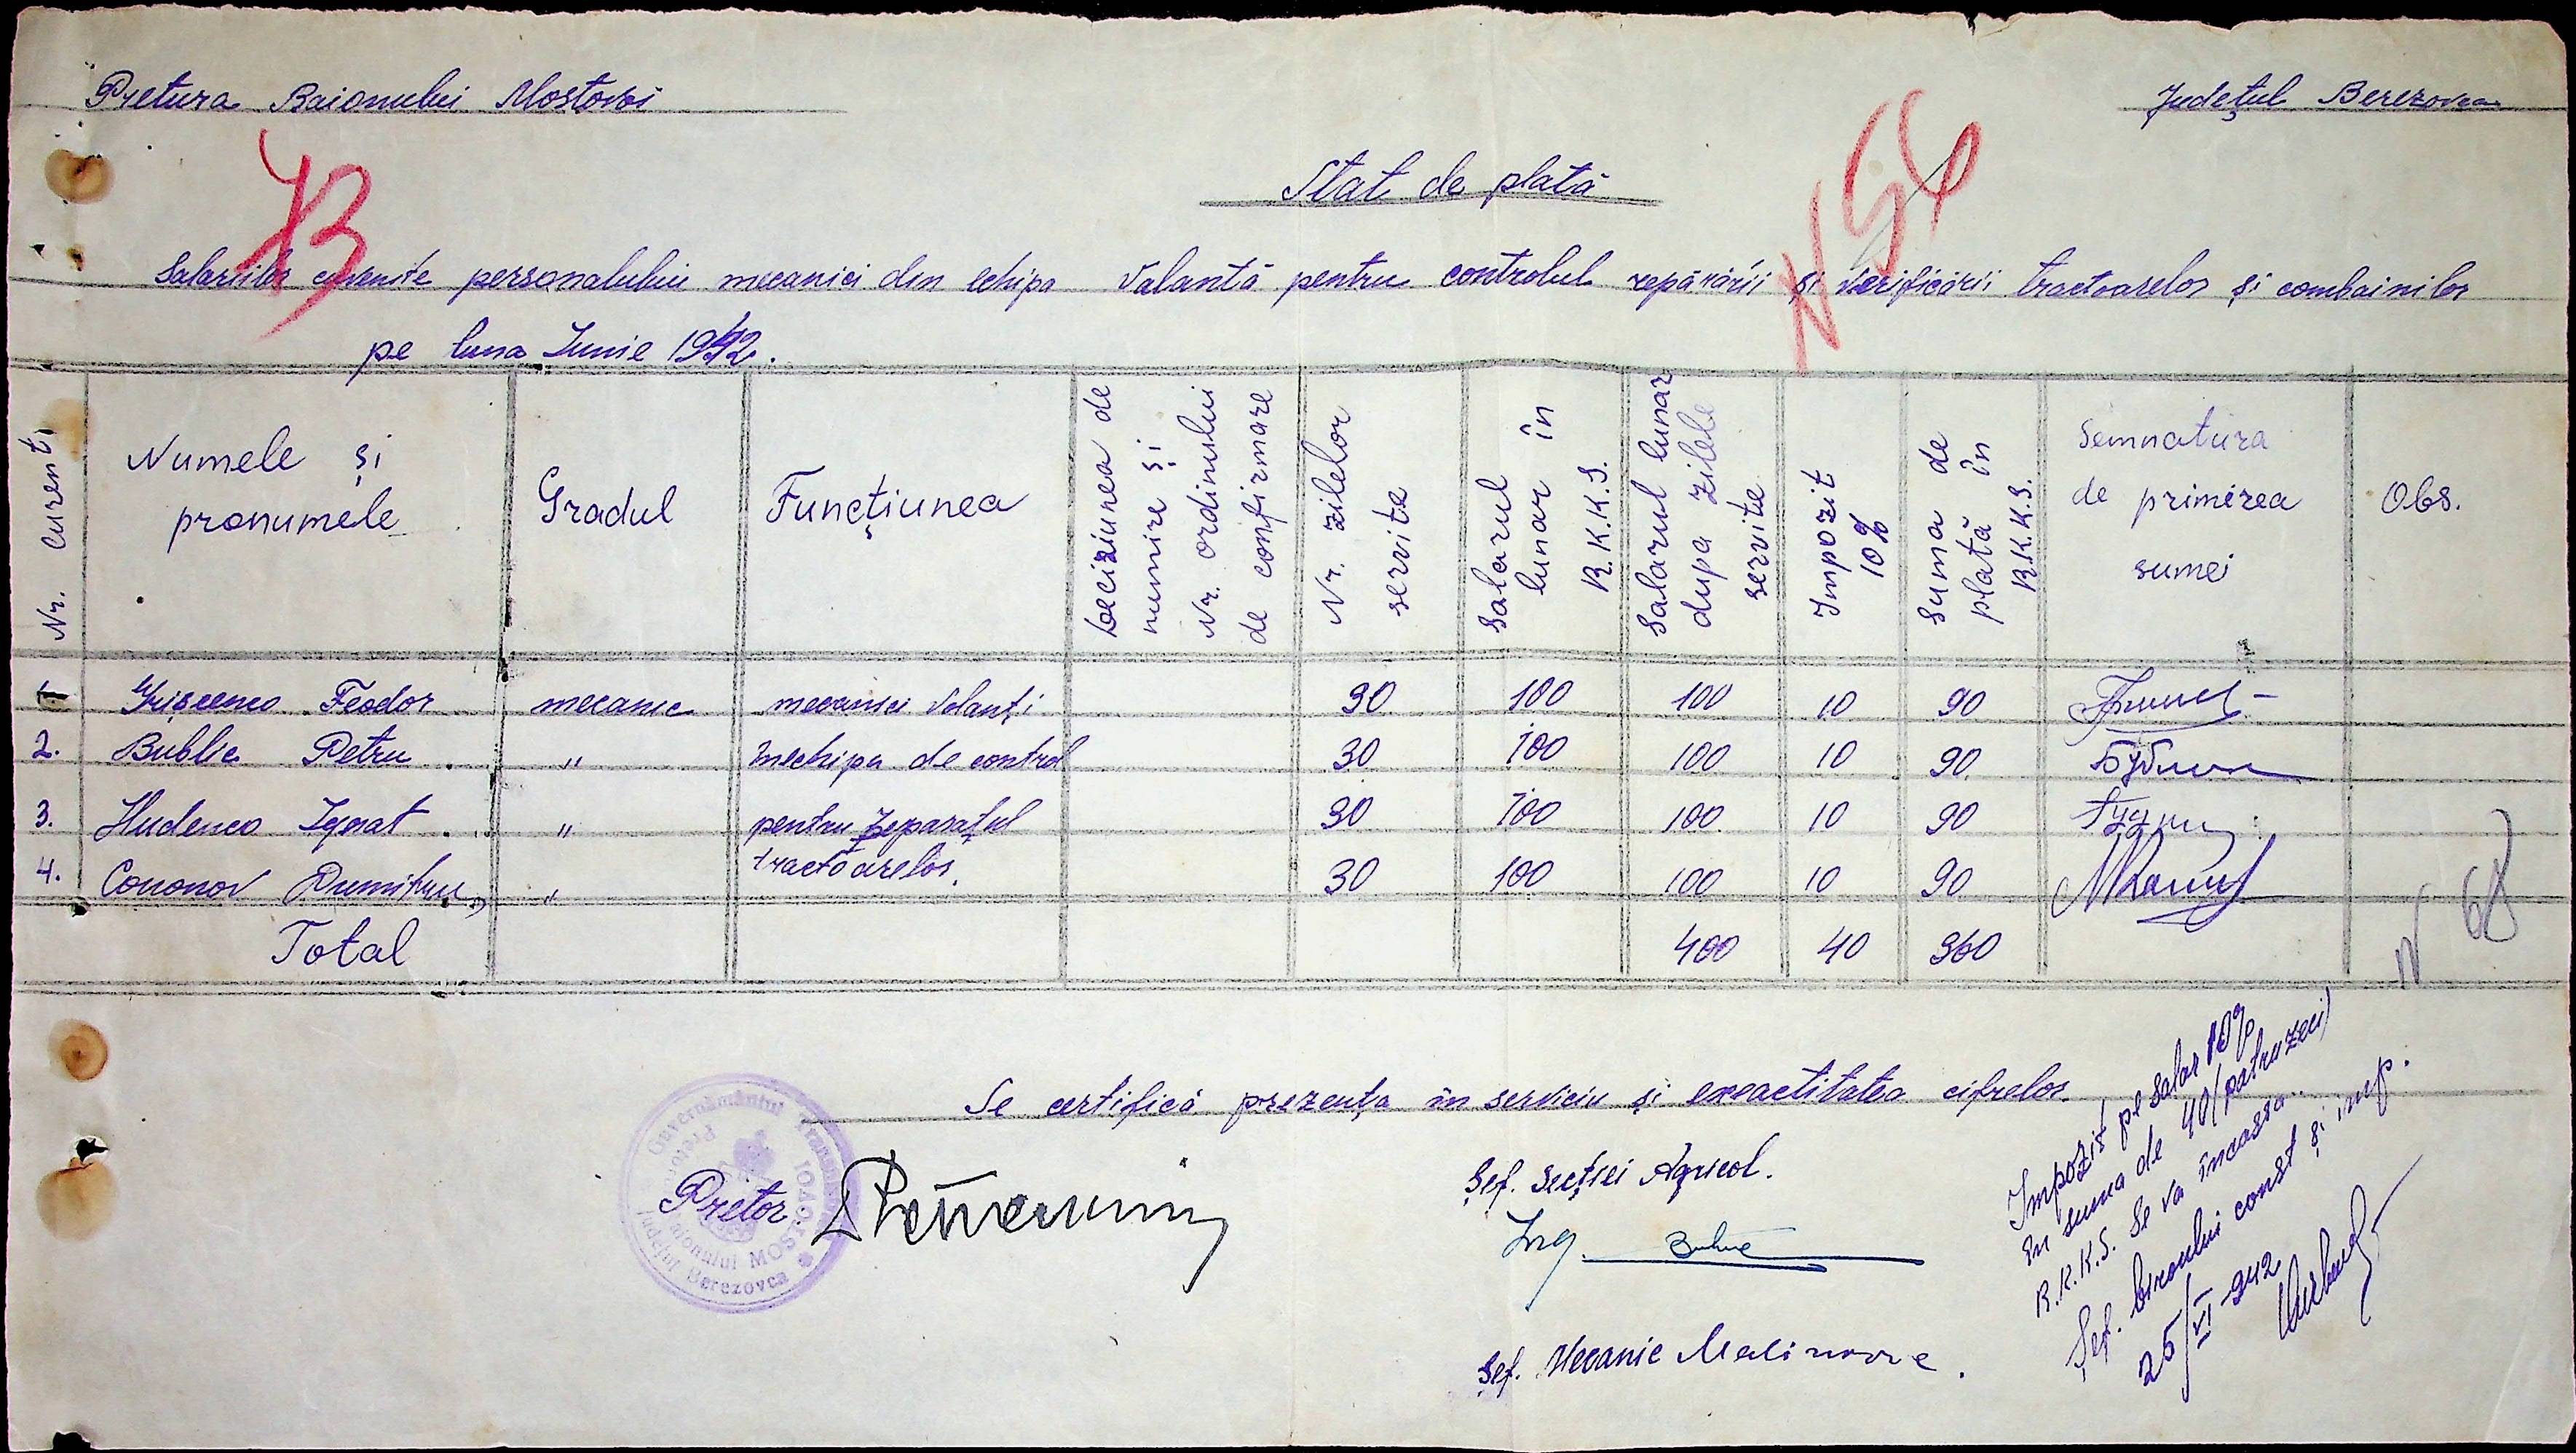 Pretura Raionului Mostovoi
Județul Berezovca
73
N 54
Stat de plată
Salariilor cuvenite personalului mecanici din echipa Valantă pentru controlul repărării și verificării tractoarelor și combainilor
pe luna Iunie 1942.
Nr. Curent.
Numele și pronumele
Gradul
Funcțiunea
Deciziunea de numire și Nr. ordinului de confirmare
Nr. zilelor servite
Salarul lunar în R.K.K.S.
Salarul lunar dupa zilele servite
Impozit 10%
Suma de plată în R.K.K.S.
Semnatura de primirea sumei
Obs.
1 Grișcenco Feodor mecanic mecanici Volanți 30 100 100 10 90
2. Bublic Petru. " înechipa de control 30 100 100 10 90
3. Hudenco Ignat. " pentru reparațul 30 100 100 10 90
4. Cononov Dumitru " tractoarelor. 30 100 100 10 90
Total 400 40 360
N 68
Se certifică prezența în serviciu și exactitatea cifrelor.
Guvernământul Transnistriei
Pretura Raionului MOSTOVOI
Județul Berezovca
Pretor
Șef. Secției Agricol.
Ing.
Șef. Mecanic
Impozit pe Salar 10%
în suma de 40 (patruzeci)
R.K.K.S. Se va încassa.
Șef. biroului const și imp.
25/VI-942